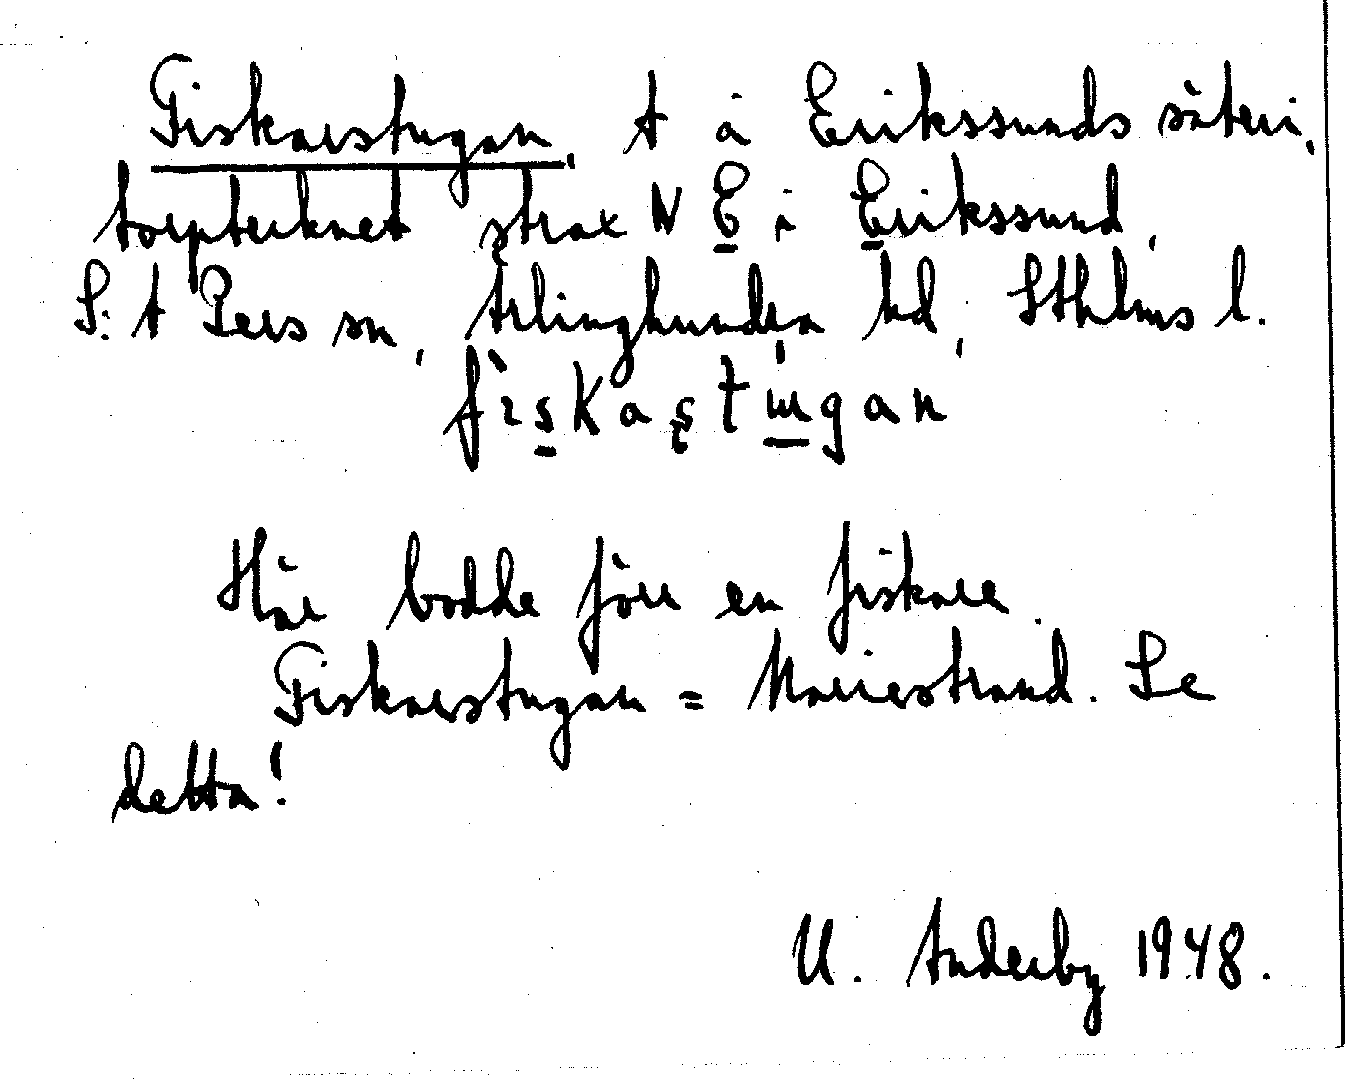 Fiskarstugan, t å Erikssunds säteri,
torptecknet strax N E i Erikssund,
S:t Pers sn, Ärlinghundra hd, Sthlms l.
fiskaştɯgan
Här bodde förr en fiskare.
Fiskarstugan = Mariestrand. Se
detta!
U. Anderby 1948.